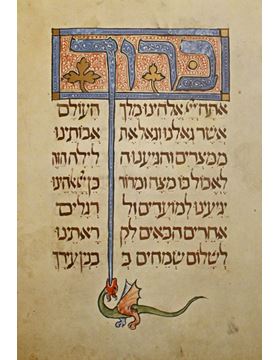 ברוך
אתה יי אלהינו מלך העולם
אשר גאלנו וגאל את אבותינו
ממצרים והגיענו לילה הזה
לאכול בו מצה ומרור כן יי אלהינו
יגיענו למועדים ול רגלים
אחרים הבאים לק ראתינו
לשלום שמחים ב בבנין עירך